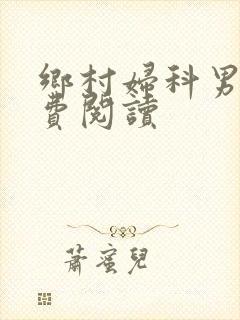 鄉村婦科男
費閱讀
蕭蜜兒